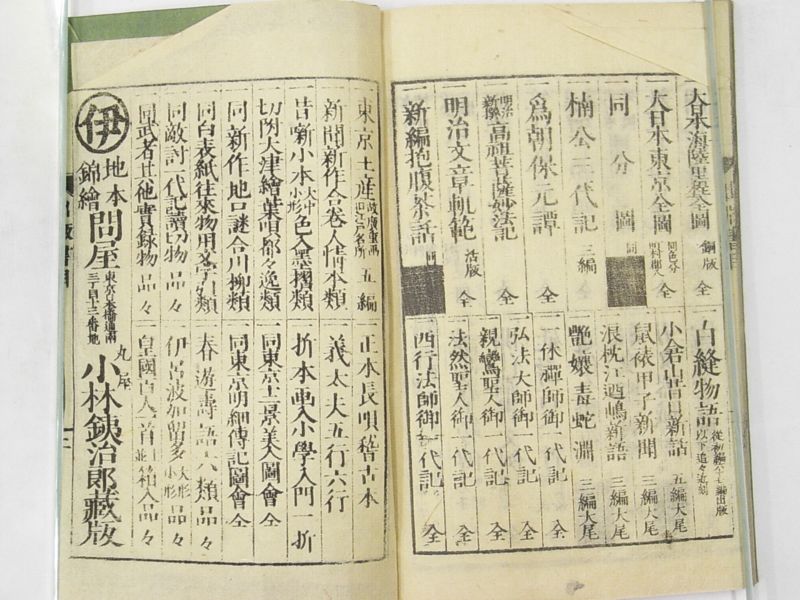 大日本海陸里程全圖 銅版 全
大日本東京全圖 同色分 町村郡入 全
同 分圖 同
楠公三代記 三編
爲朝保元譚 全
高祖菩薩妙法記 全
明治文章軌範 活版 全
新編抱腹茶話 同
白縫物語
小倉山昔日新話 五編大尾
鼠裱甲子新聞 三編大尾
浪枕江遊嶋新語 三編大尾
艶孃毒蛇淵 三編大尾
一休禪師御一代記 全
弘法大師御一代記 全
親鸞聖人御一代記 全
法然聖人御一代記 全
西行法師御一代記 全
東京土産 五編
新聞新作合卷人情本類
昔噺小本 大中小形 色入墨摺類
切附大津繪葉唄都々逸類
同新作地口謎合川柳類
同白表紙往來物用文字引類
同敵討一代記讀切物 品々
同武者其他實録物 品々
正本長唄稽古本
義太夫五行六行
折本画入小學入門一折
同東京十二景美人圖會 全
同東京明細傳記圖會 全
春遊壽語六類 品々
伊呂波加留多 大形小形 品々
皇國百人一首並箱入品々
伊
地本
錦繪
問屋
東京日本橋通
三丁目十三番地
丸屋
小林鉄治郎藏版